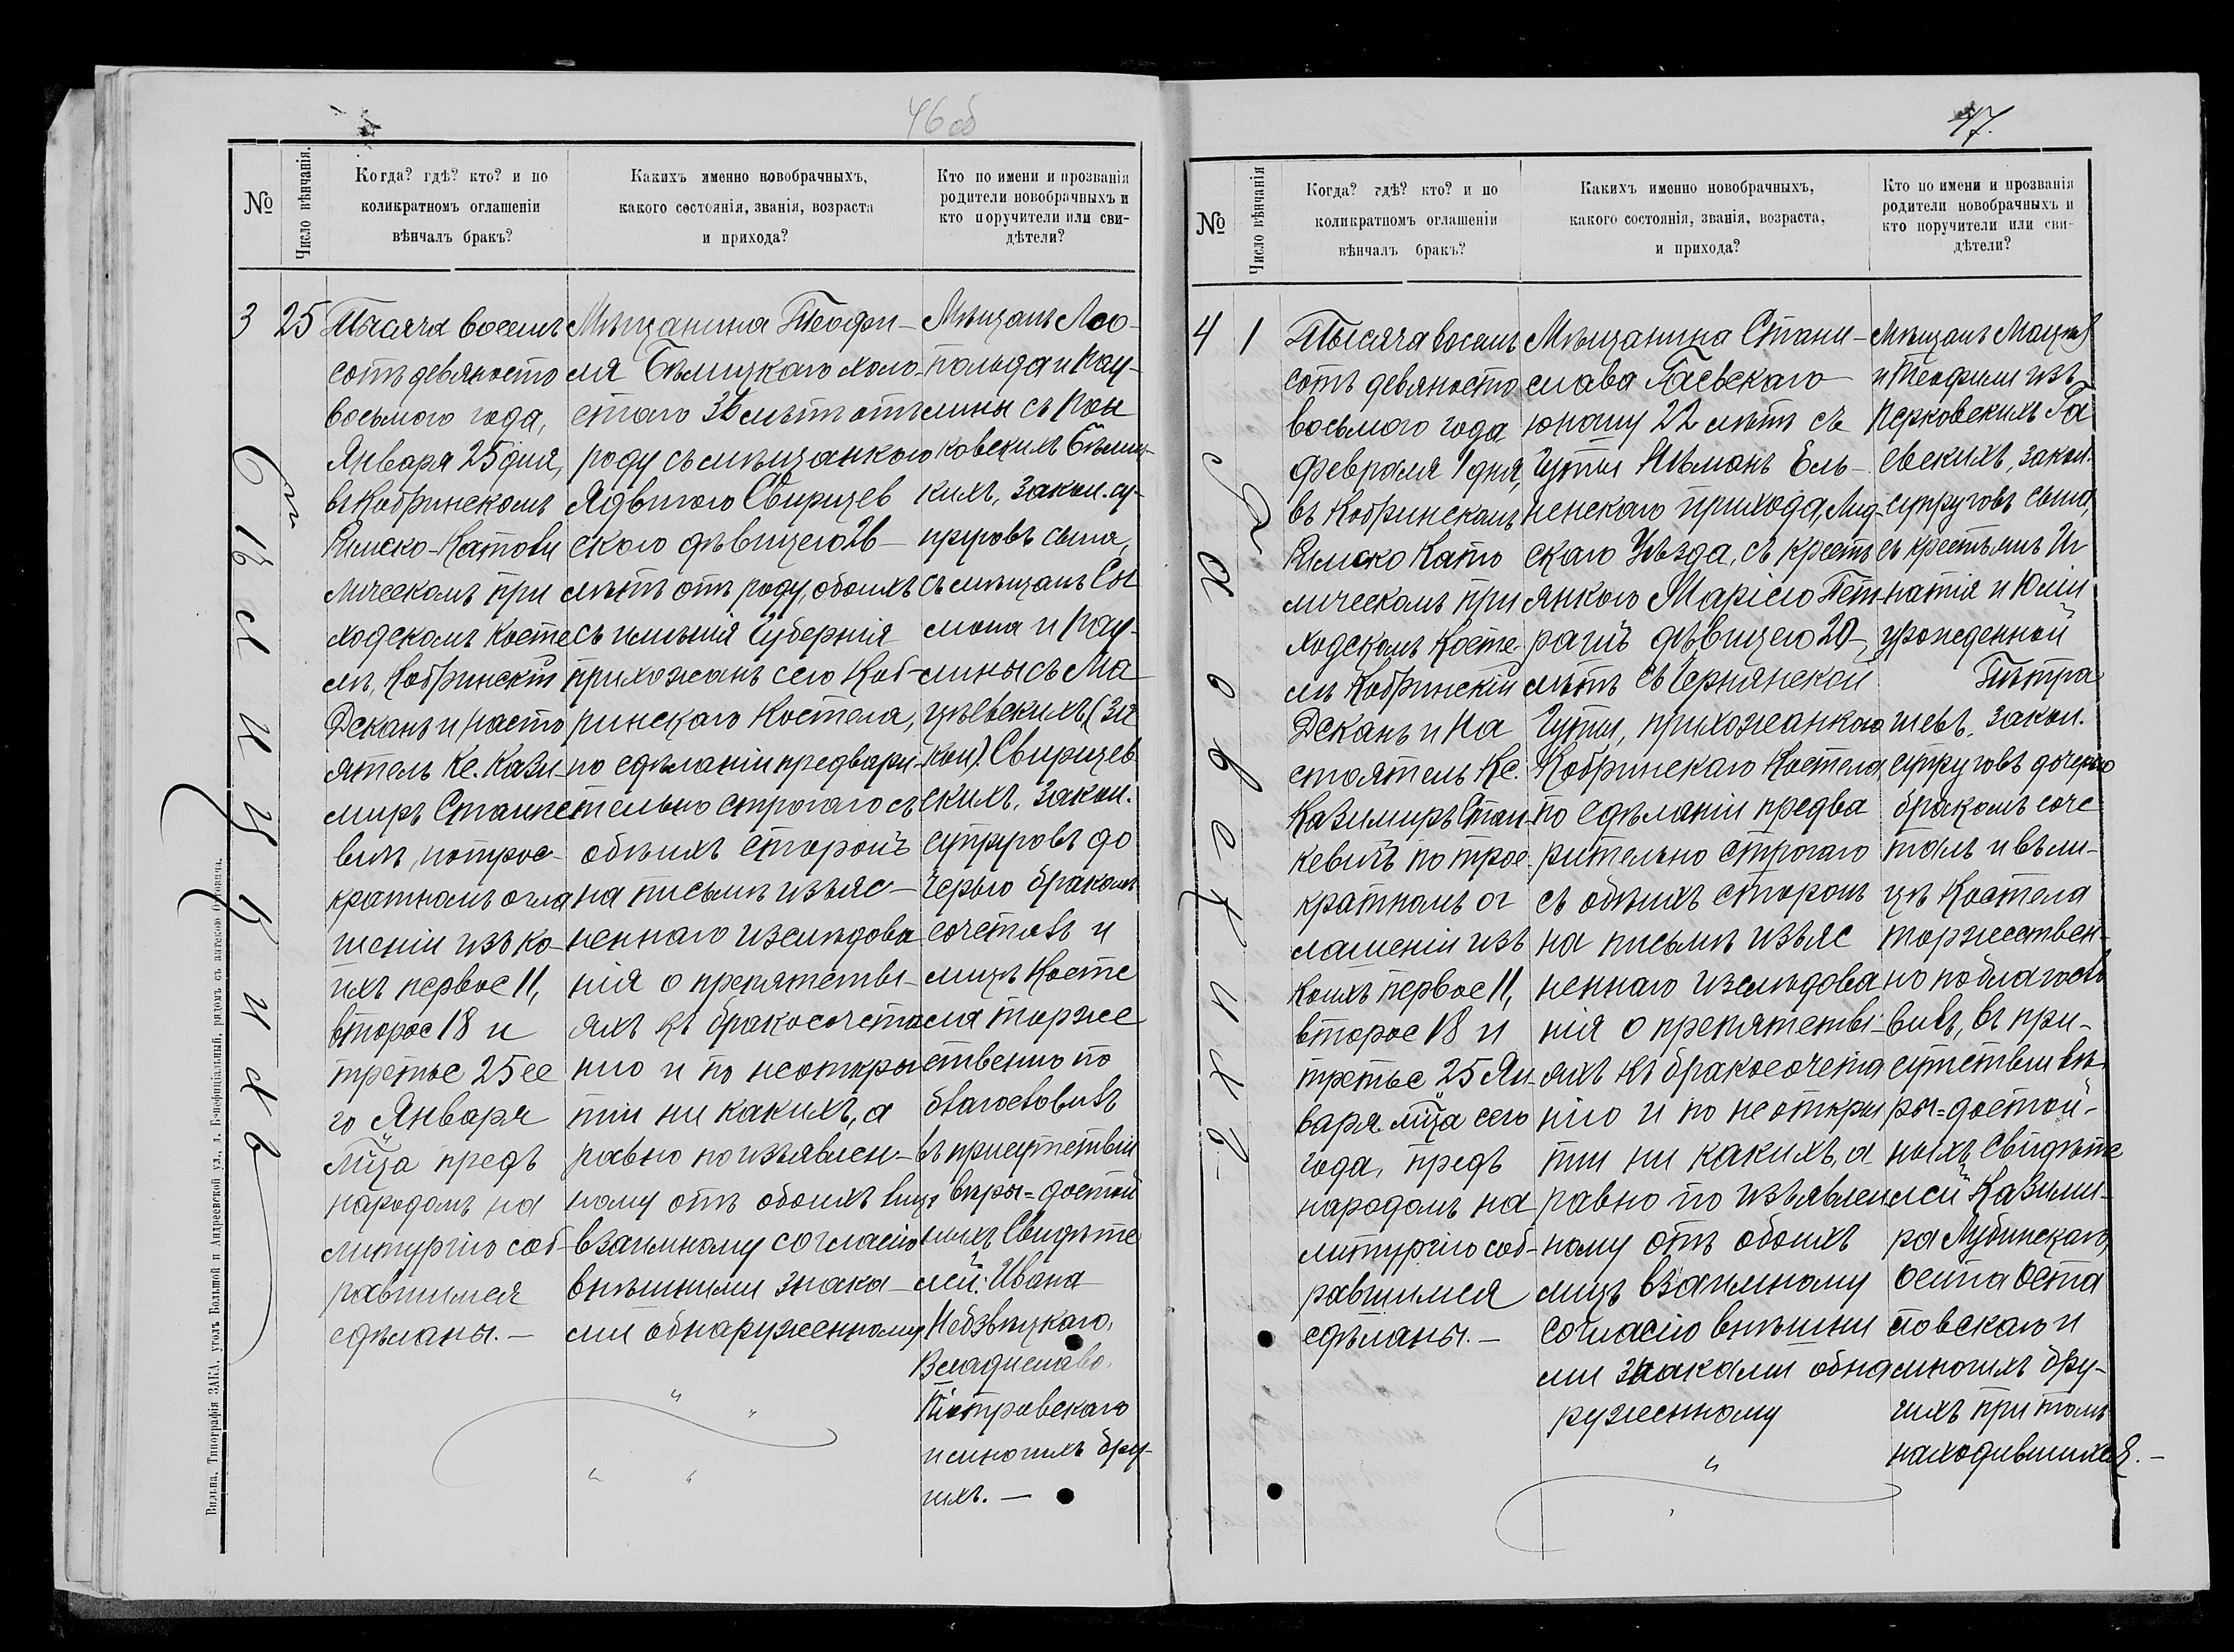 46 об
№
Число вѣнчанія.
Когда? гдѣ? кто? и по
коликратномъ оглашеніи
вѣнчалъ бракъ?
Какихъ именно новобрачныхъ,
какого состоянія, званія, возраста
и прихода?
Кто по имени и прозванія
родители новобрачныхъ и
кто поручители или сви-
дѣтели?
3
25
Тысяча восемь
сотъ девяносто
восьмого года,
Января 25 дня,
въ Кобринскомъ
Римско-Католи
ческомъ при
ходскомъ Косте
лѣ, Кобринскій
Деканъ и Насто
ятель Кс. Кази-
миръ Станке
вичъ, по трое-
кратномъ огла
шеніи изъ ко-
ихъ первое 11,
второе 18 и
третье 25 се
го Января
м̃ца предъ
народомъ на
литургію соб-
равшимся
сдѣланы. —
Мѣщанина Теофи-
ля Бѣлицкаго холо-
стаго 36 лѣтъ отъ
роду съ мѣщанкою
Ядвигою Свирщев
скою дѣвицею 26
лѣтъ отъ роду, обоихъ
съ имѣнія Губернія
прихожанъ сего Коб-
ринскаго Костела,
по сдѣланіи предвари-
тельно строгаго съ
обѣихъ сторонъ
на письмѣ изъяс-
неннаго изслѣдова
нія о препятстві-
яхъ къ бракосочета
нію и по неоткры
тіи ни какихъ, а
равно по изъявлен-
ному отъ обоихъ лицъ
взаимному согласію
внѣшними знака-
ми обнаруженному
Мѣщанъ Лео-
польда и Пау-
лины съ Пан
ковскихъ Бѣлиц-
кихъ, закон. су-
пруговъ сына,
съ мѣщанъ Си
мона и Пау-
лины съ Ма
цѣевскихъ
Свирщев
скихъ, закон.
супруговъ до
черью бракомъ
сочеталъ и
лицѣ Косте
ла торже
ственно по
благословилъ
въ присутствіи
вѣры=достой
ныхъ Свидѣте
лей: Ивана
Небзвѣцкаго,
Владислава
Піотровскаго
и многихъ дру-
гихъ. —
Вильна. Типографія ЗАКА, уголъ Большой и Андреевской ул., д. Бенефиціальный, рядомъ съ аптекою
47.
№
Число вѣнчанія
Когда? гдѣ? кто? и по
коликратномъ оглашеніи
вѣнчалъ бракъ?
Какихъ именно новобрачныхъ,
какого состоянія, званія, возраста,
и прихода?
Кто по имени и прозванія
родители новобрачныхъ и
кто поручители или сви-
дѣтели?
4
1
Тысяча восемь
сотъ девяносто
восьмого года
февраля 1 дня,
въ Кобринскомъ
Римско Като
лическомъ при
ходскомъ Косте-
лѣ Кобринскій
Деканъ и На
стоятель Кс.
Казимиръ Стан-
кевичъ по трое-
кратномъ ог
лашеніи изъ
коихъ первое 11,
второе 18 и
третье 25 Ян-
варя м̃ца сего
года, предъ
народомъ на
литургію соб-
равшимся
сдѣланы. —
Мѣщанина Стани-
слава Гаевскаго
юношу 22 лѣтъ съ
Гуты Нѣманъ Ель-
ненскаго прихода, Лид-
скаго Уѣзда, съ кресть
янкою Маріею Пет-
рашъ дѣвицею 20
лѣтъ съ Чернянской
Гуты, прихожанкою
Кобринскаго Костела
по сдѣланіи предва
рительно строгаго
съ обѣихъ сторонъ
на письмѣ изъяс
неннаго изслѣдова
нія о препятстві-
яхъ къ бракосочета
нію и по неоткры
тіи ни какихъ, а
равно по изъявлен
ному отъ обоихъ
лицъ взаимному
согласію внѣшни
ми знаками обна
руженному
Мѣщанъ
и Теофили изъ
Перковскихъ Га
евскихъ, закон.
супруговъ сына,
съ крестьянъ Иг
натія и Юліи
урожденной
Петра
шевъ, закон.
супруговъ дочерью
бракомъ соче
талъ и въ ли-
цѣ Костела
торжествен-
но поблагосло
вилъ, въ при-
сутствіи вѣ-
ры=достой-
ныхъ Свидѣте
лей Казими-
ра Лубинскаго,
Осипа Оста
повскаго и
многихъ дру-
гихъ при томъ
находившихся. —